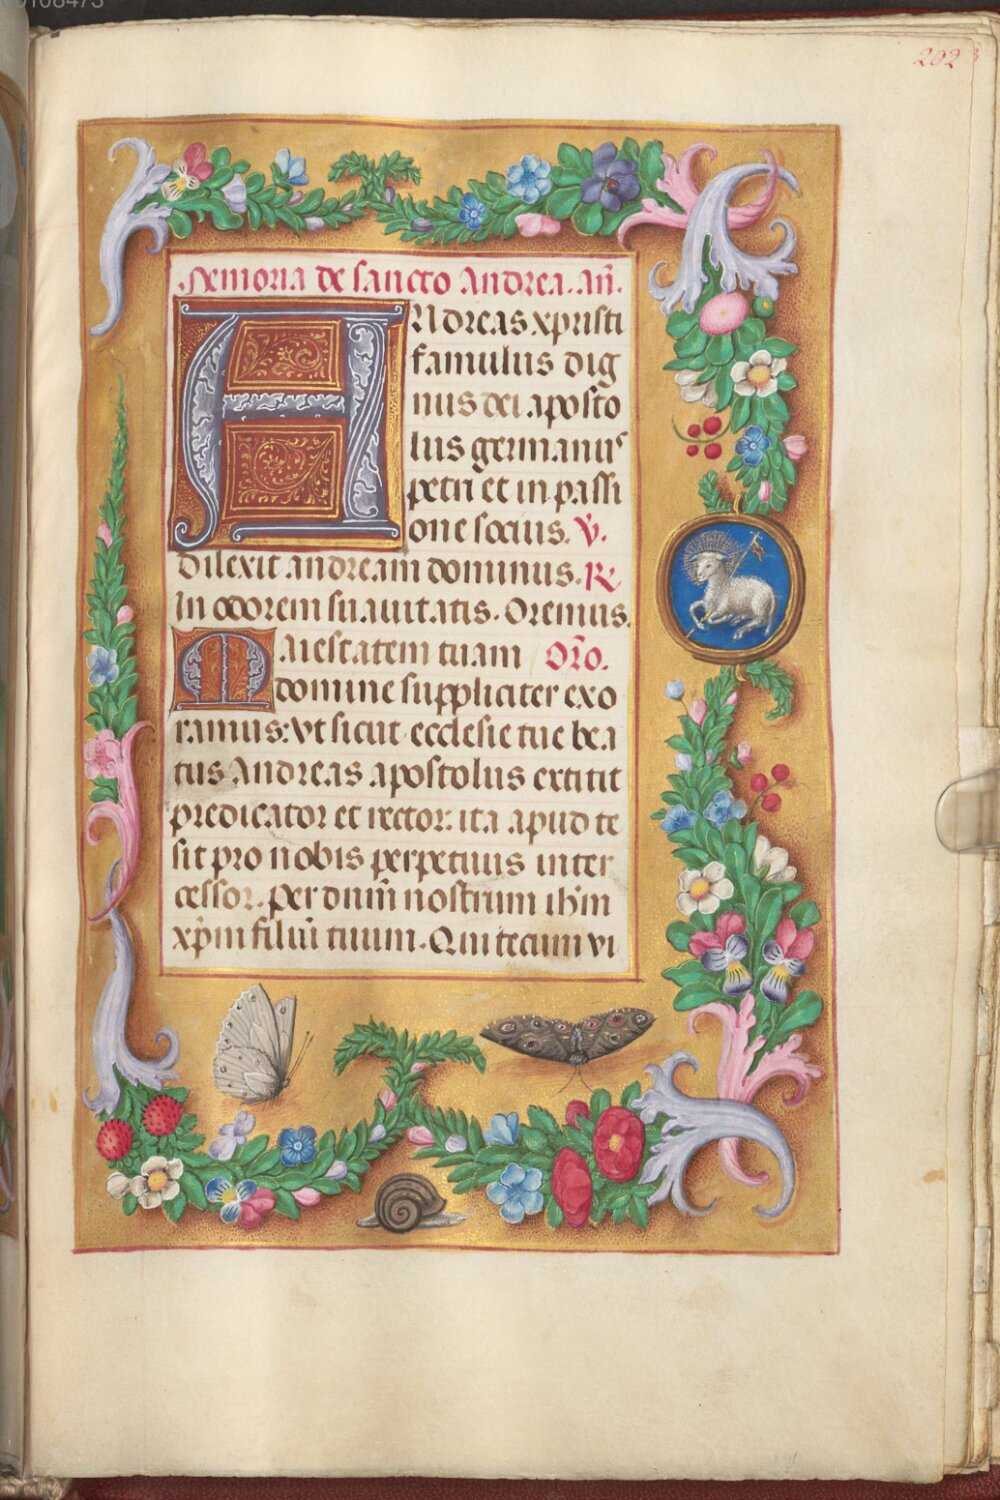 202
Memoria de sancto Andrea. añ.
ANdreas xpristi
famulus dig
nus dei aposto
lus germanus
petri et in passi
one socius. V̇.
Dilexit andream dominus. R
In odorem suauitatis. Oremus.
Maiestatem tuam Or̃o.
domine suppliciter exo
ramus: vt sicut ecclesie tue bea
tus Andreas apostolus extitit
predicator et rector: ita apud te
sit pro nobis perpetuus inter
cessor. per dnm̃ nostrum ihm̄
xp̄m filiū tuum. Qui tecum vi